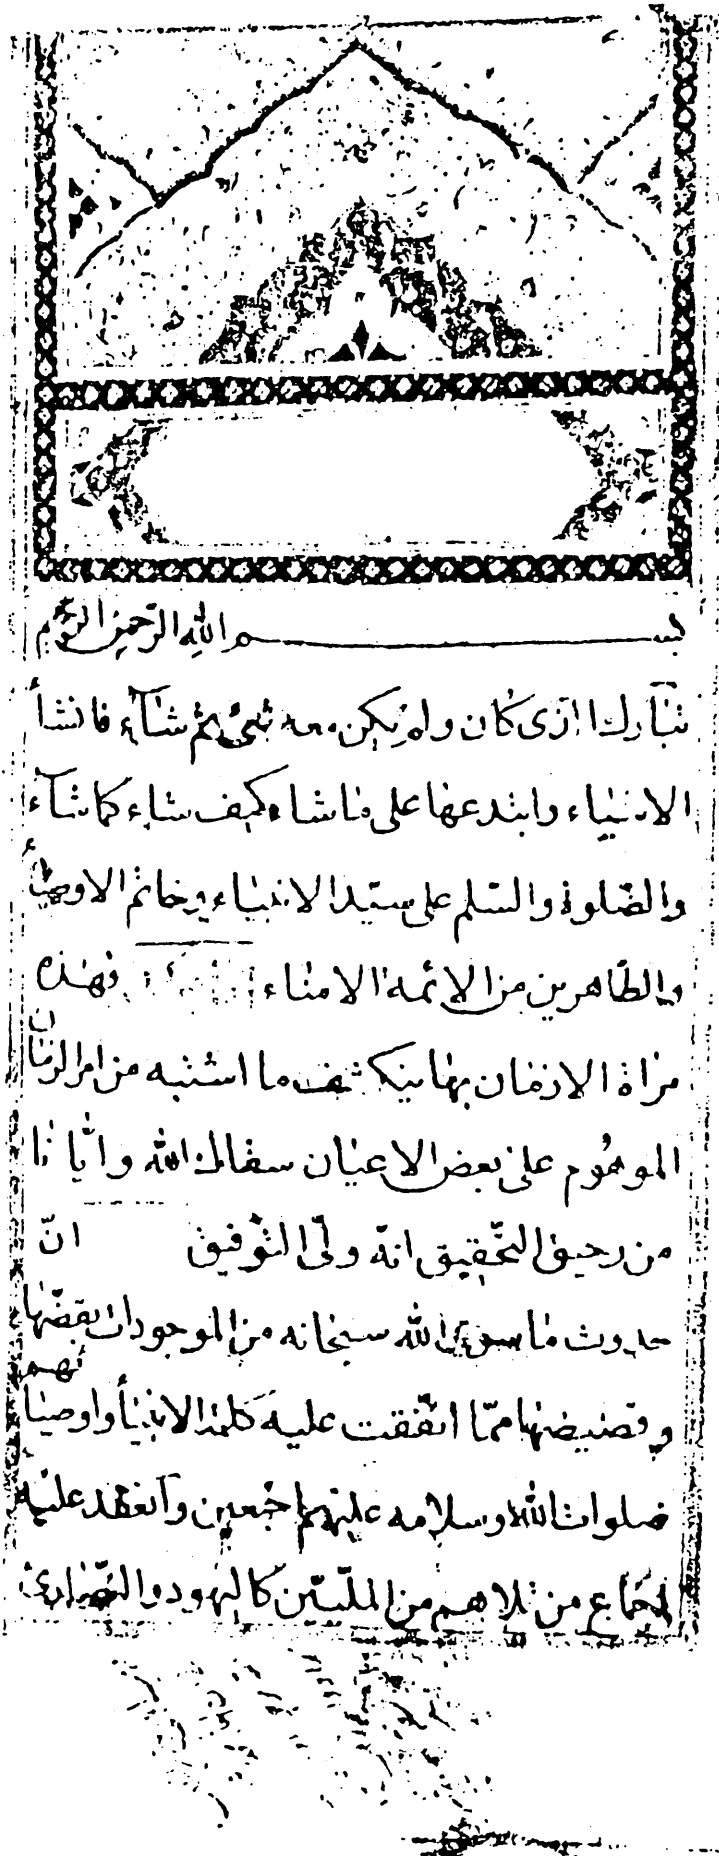 بسم الله الرحمن الرحيم
تبارك الذى كان ولم يكن معه شئ ثم شآء فانشأ
الاشياء وابتدعها على ماشاء كيف شاء كما شآء
والصّلوة والسّلم على سيّد الانبياء وخاتم الاوصيآء
والطّاهرين من الائمة الامناء فهذه
مراة الازمان بها ينكشف ما اشتبه من امر الزمان
الموهوم على بعض الاعيان سقاك الله وايّانا
من رحيق التحقيق انه ولىّ التوفيق انّ
حدوث ما سوى الله سبحانه من الموجودات بقضّها
وقضيضها ممّا اتّفقت عليه كلمة الانبيآ واوصيائهم
صلوات الله وسلامه عليهم اجمعين وانعقد عليه
اجماع من تلاهم من الملّيّين كاليهود والنّصارى